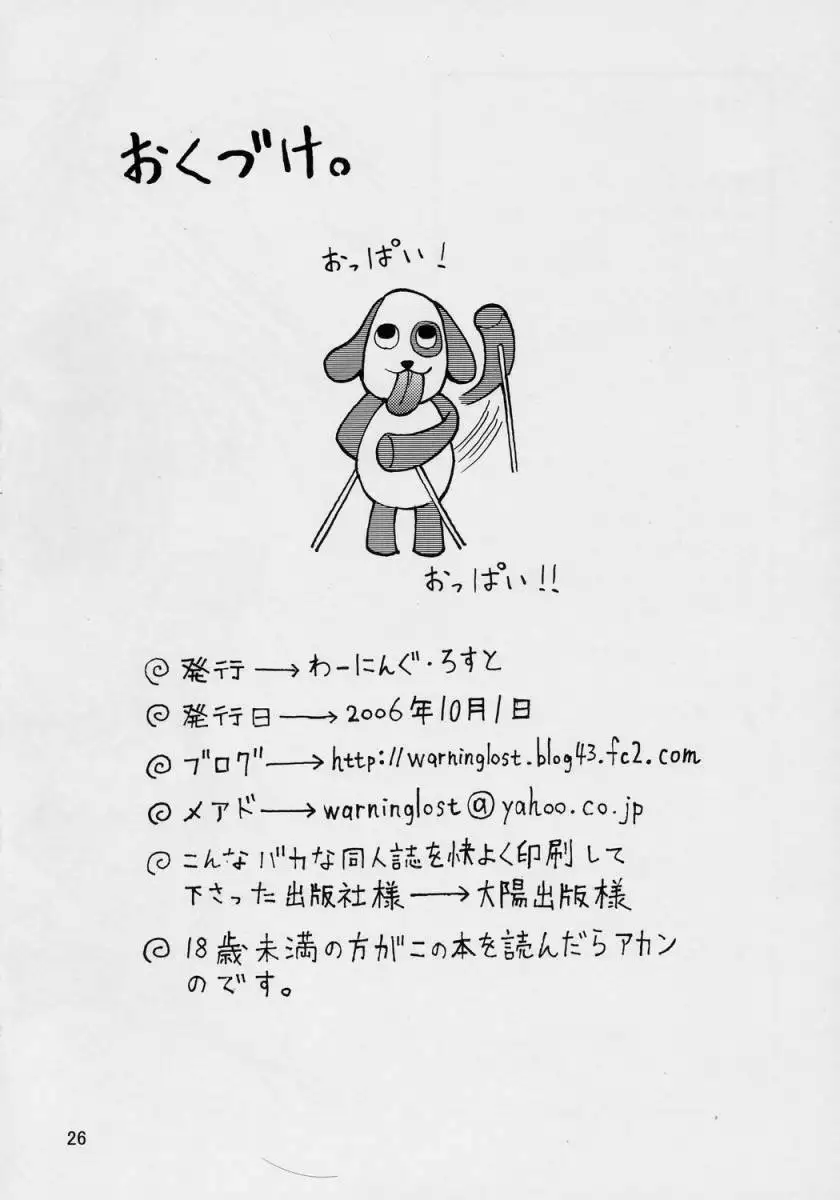 おくづけ。
おっぱい!
おっぱい!!
発行→わーにんぐ・ろすと
発行日→2006年10月1日
ブログ→http://warninglost.blog43.fc2.com
メアド→warninglost@yahoo.co.jp
こんなバカな同人誌を快よく印刷して
下さった出版社様→大陽出版様
18歳未満の方がこの本を読んだらアカン
のです。
26